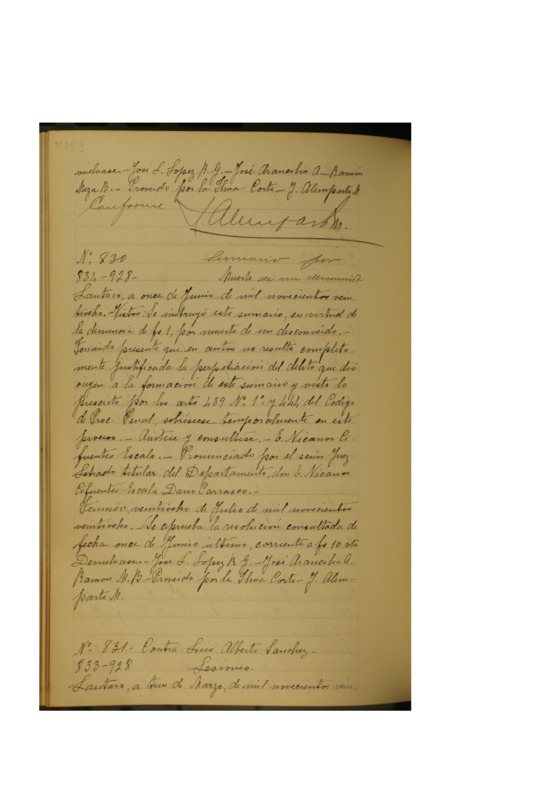 vuélvase.- José L. Lopez R. G.- José Arancibia A.- Ramón
Meza B.- Proveido por la Iltma Corte.- J. Alemparte M.
Conforme
J Alemparte M.
N.° 830 Sumario por
834-928- Muerte de un desconocido
Lautaro, a once de Junio de mil novecientos vein-
tiocho.- Vistos: Se instruyó este sumario, en virtud de
la denuncia de fs 1, por muerte de un desconocido.-
Teniendo presente que en autos no resulta completa
mente justificada la perpetración del delito que dió
origen a la formación de este sumario y visto lo
prescrito por los arts 439 N.° 1.° y 444 del Codigo
de Proc. Penal, sobréseese temporalmente en este
proceso.- Anótese y consúltese.- E. Nicanor Ci-
fuentes Escala.- Pronunciado por el señor Juez
Letrado titular del Departamento, don E. Nicanor
Cifuentes Escala Dario Carrasco.-
Temuco, veintiocho de Julio de mil novecientos
veintiocho.- Se aprueba la resolución consultada de
fecha once de Junio último, corriente a fs 10 vta
Devuelvase.- José L. Lopez R. G.- José Arancibia A.
Ramon M. B.- Proveido por la Iltma Corte.- J. Alem-
parte M.
N.° 831- Contra Luis Alberto Sanchez.-
833-928 Lesiones.
Lautaro, a tres de Marzo, de mil novecientos vein